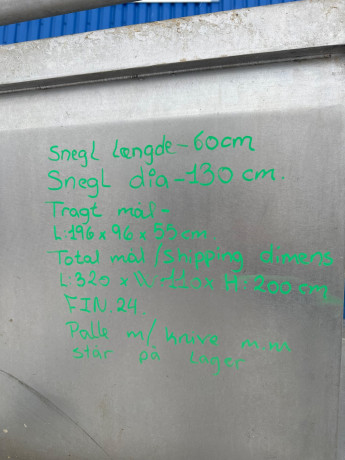 Snegl Længde-60cm
Snegl dia-130 cm.
Tragt mål-
L:196 x 96 x 55 cm
Total mål / Shipping dimens
L:320 x W:110 x H:200 cm
FIN.24.
Palle m/ knive m.m
står på lager